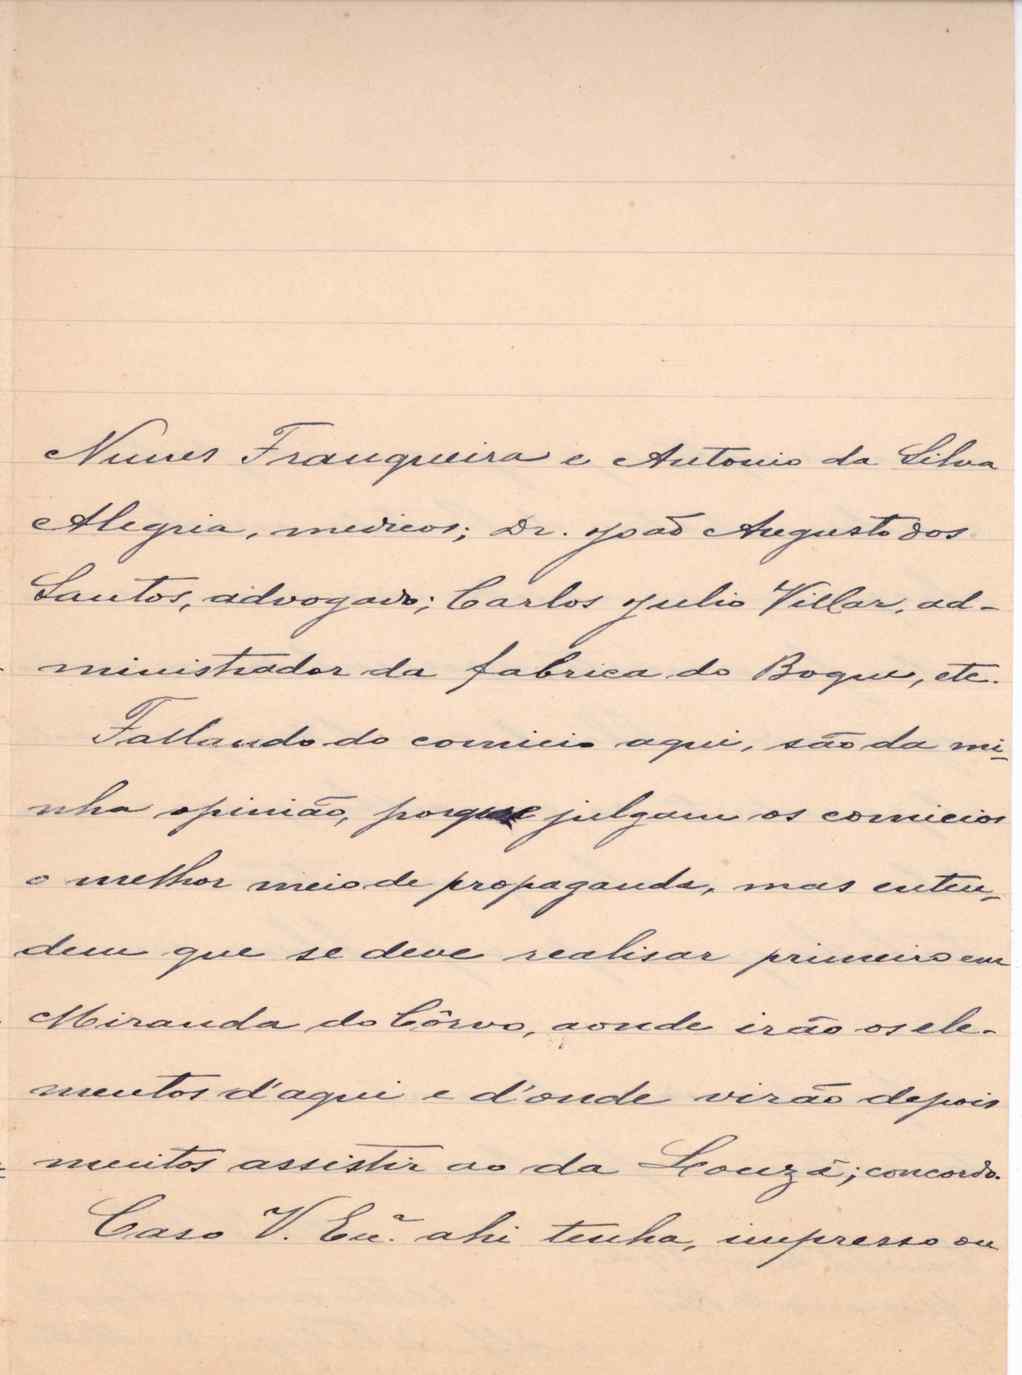 Nunes Frauqueira e Antonio da Silva
Alegria, medicos; Dr. João Augusto dos
Santos, advogado; Carlos Julio Villar, ad-
ministrador da fabrica do Boque, etc.
Fallando do comicio aqui, são da mi-
nha opinião, porque julgam os comicios
o melhor meio de propaganda, mas enten-
dem que se deve realisar primeiro em
Miranda do Côrvo, aonde irão os ele-
mentos d'aqui e d'onde virão depois
muitos assistir ao da Louzã; concordo.
Caso V. Exª. ahi tenha, impresso ou